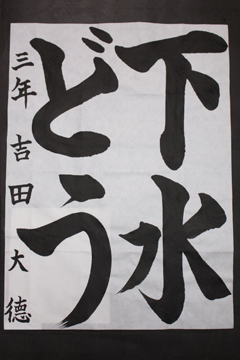 下水
どう
三年 吉田大徳